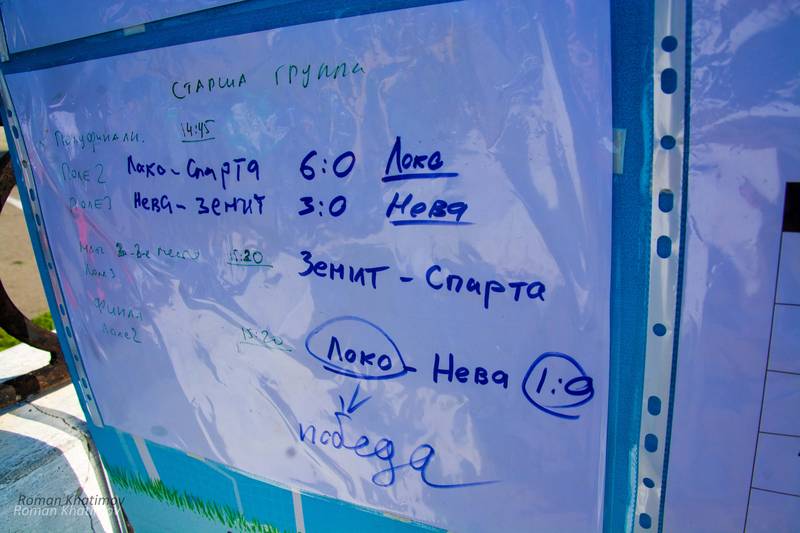 СТАРША ГРУППА
Полуфинали. 14:45
Поле 2 Локо-Спарта 6:0 Локо
Поле 3 Нева-Зенит 3:0 Нева
за 3-е место 15:20 Зенит - Спарта
Поле 3
Финал
Поле 2 15:20 Локо - Нева 1:0
победа
Roman Khatimov
Roman Khatimov